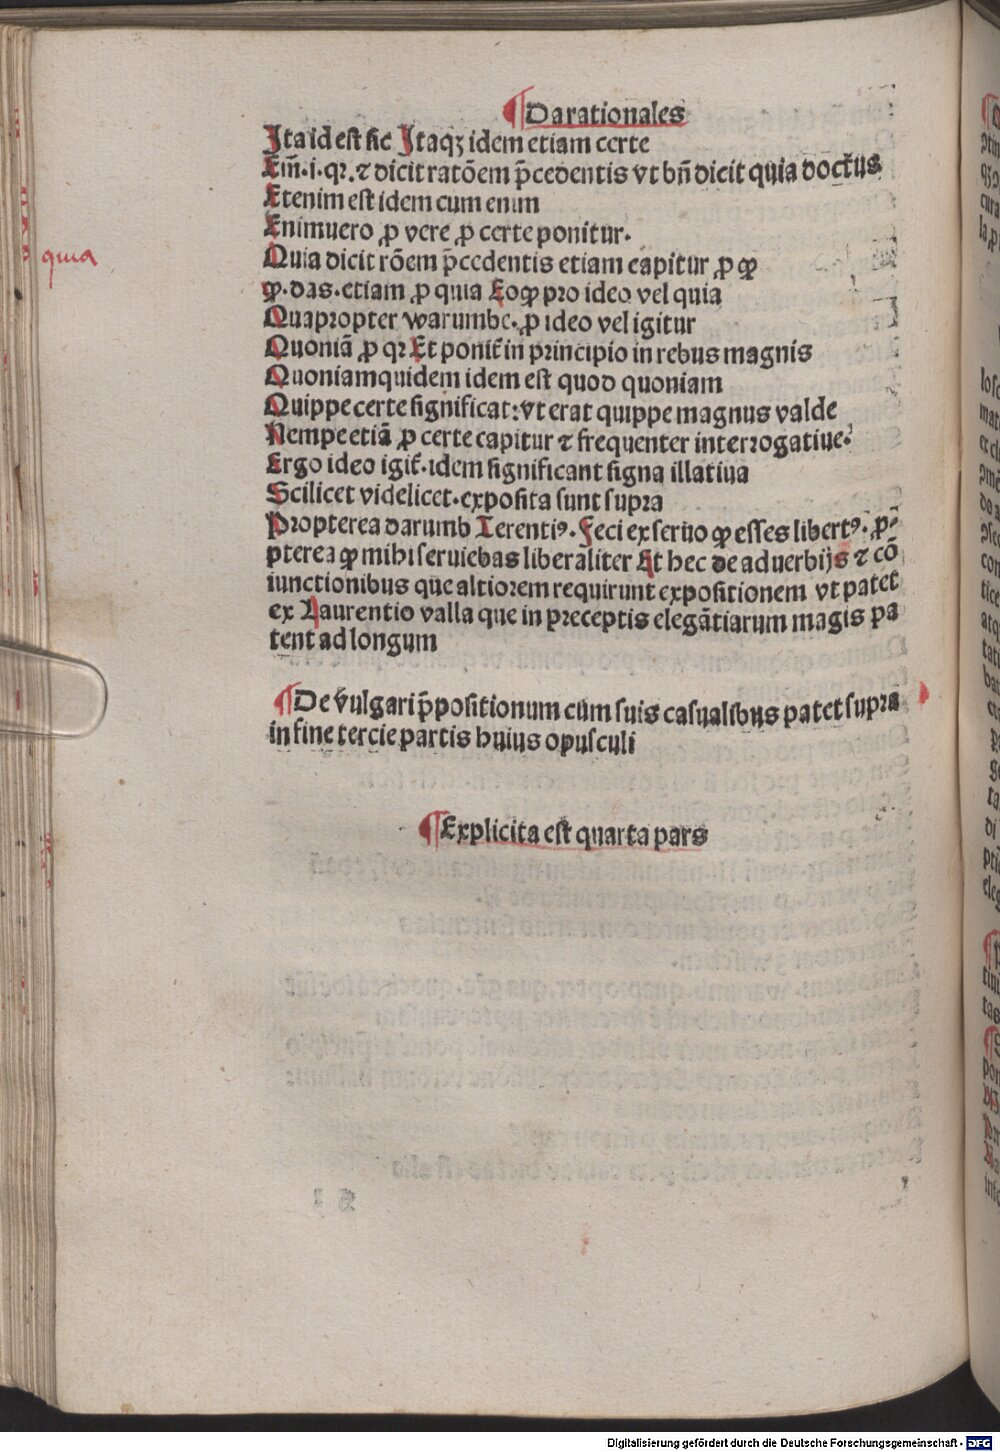 ¶Da rationales
Ita id est sic Itaqꝫ idem etiam certe
Em̄.i.qꝛ.⁊ dicit ratōem p̄cedentis vt bn̄ dicit quia doctus
Etenim est idem cum enim
Enimuero ꝓ vere ꝓ certe ponitur.
quia
Quia dicit rōem p̄cedentis etiam capitur ꝓ ꝙ
ꝙ.das.etiam ꝓ quia Eoꝙ pro ideo vel quia
Quapropter warumbe.ꝓ ideo vel igitur
Quoniā ꝓ qꝛ Et ponit᷑ in principio in rebus magnis
Quoniamquidem idem est quod quoniam
Quippe certe significat:vt erat quippe magnus valde
Nempe etiā ꝓ certe capitur ⁊ frequenter interrogatiue.
Ergo ideo igit᷑.idem significant signa illatiua
Scilicet videlicet.exposita sunt supra
Propterea darumb Terentiꝰ.Feci ex seruo ꝙ esses libertꝰ.ꝓ-
pterea ꝙ mihi seruiebas liberaliter Et hec de aduerbijs ⁊ cō
iunctionibus que altiorem requirunt expositionem vt patet
ex Laurentio valla que in preceptis elegātiarum magis pa
tent ad longum
¶De vulgari p̄positionum cum suis casualibus patet supra
in fine tercie partis huius opusculi
¶Explicita est quarta pars
Digitalisierung gefördert durch die Deutsche Forschungsgemeinschaft - DFG